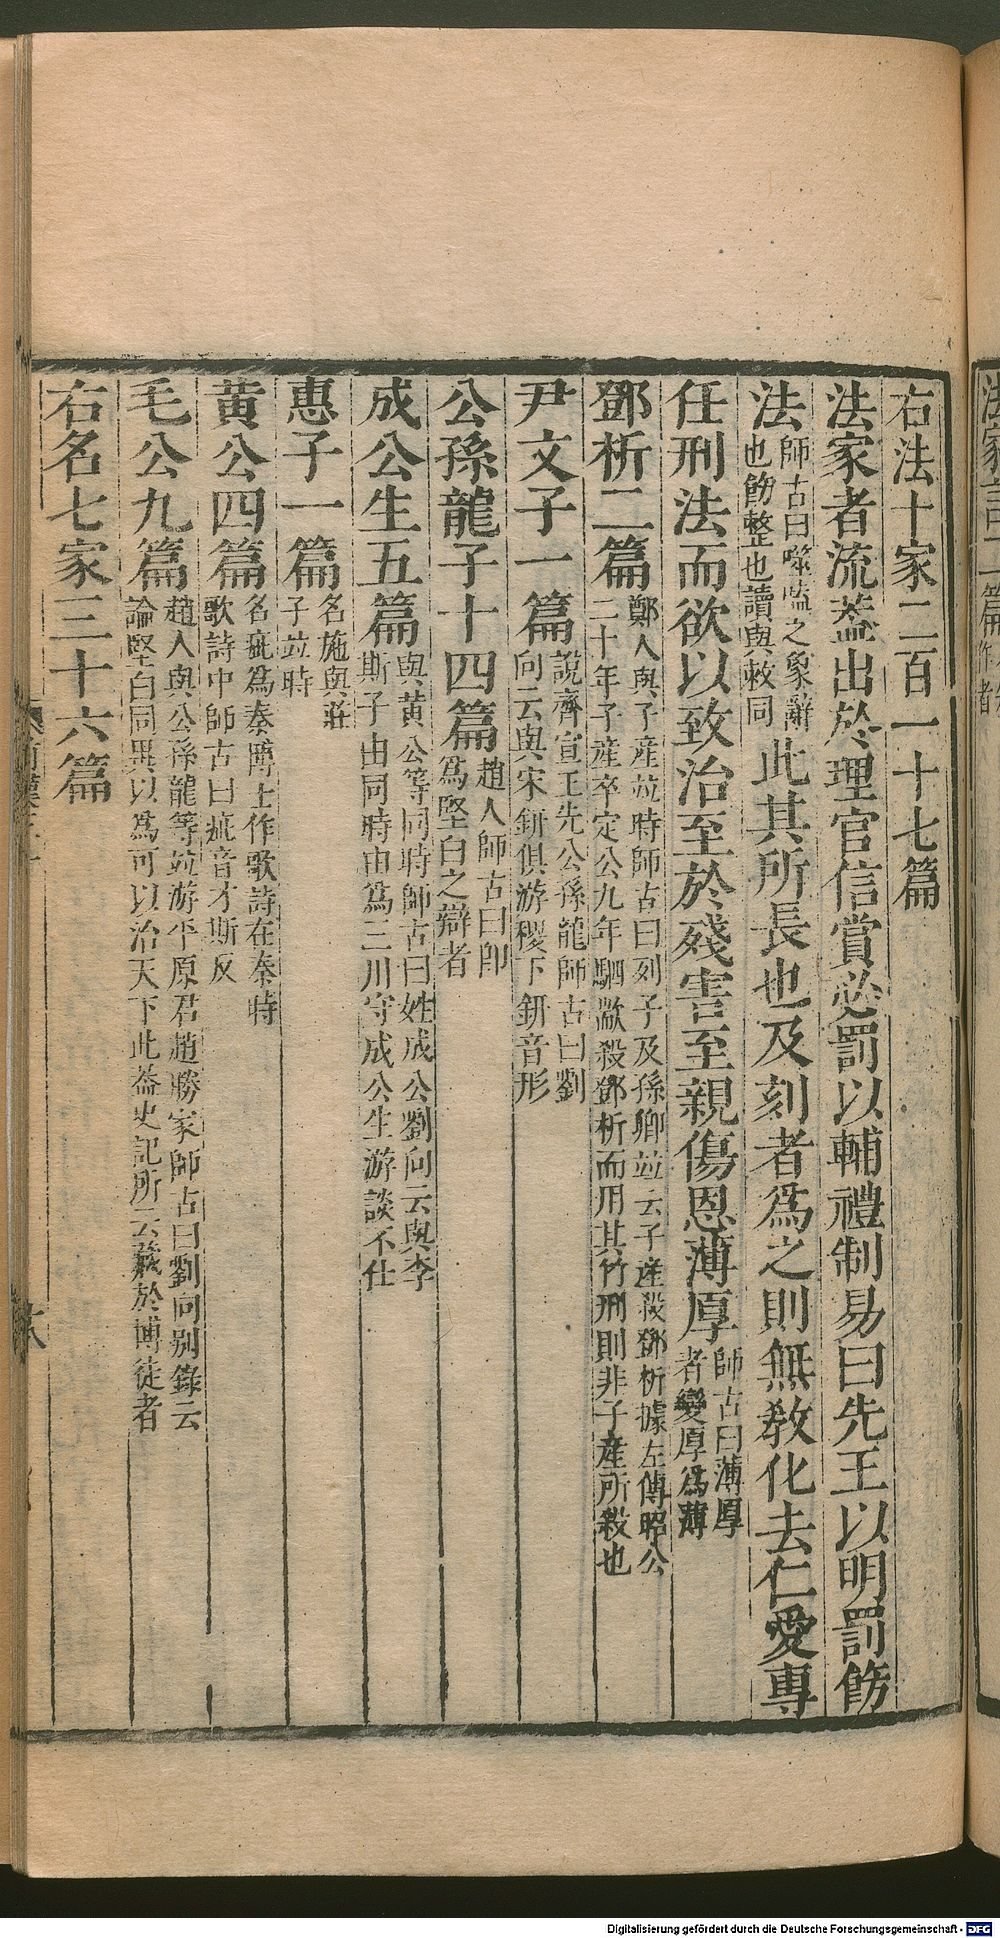 右法十家二百一十七篇
法家者流蓋出於理官信賞必罰以輔禮制易曰先王以明罰飭
法師古曰噬嗑之象辭也飭整也讀與敕同此其所長也及刻者爲之則無敎化去仁愛專
任刑法而欲以致治至於殘害至親傷恩薄厚師古曰薄厚者變厚爲薄
鄧析二篇鄭人與子產竝時師古曰列子及孫卿竝云子產殺鄧析據左傳昭公二十年子產卒定公九年駟歂殺鄧析而用其竹刑則非子產所殺也
尹文子一篇說齊宣王先公孫龍師古曰劉向云與宋鈃俱游稷下鈃音形
公孫龍子十四篇趙人師古曰卽爲堅白之辯者
成公生五篇與黃公等同時師古曰姓成公劉向云與李斯子由同時由爲三川守成公生游談不仕
惠子一篇名施與莊子竝時
黃公四篇名疵爲秦博士作歌詩在秦時歌詩中師古曰疵音才斯反
毛公九篇趙人與公孫龍等竝游平原君趙勝家師古曰劉向別錄云論堅白同異以爲可以治天下此蓋史記所云藏於博徒者
右名七家三十六篇
Digitalisierung gefördert durch die Deutsche Forschungsgemeinschaft - DFG